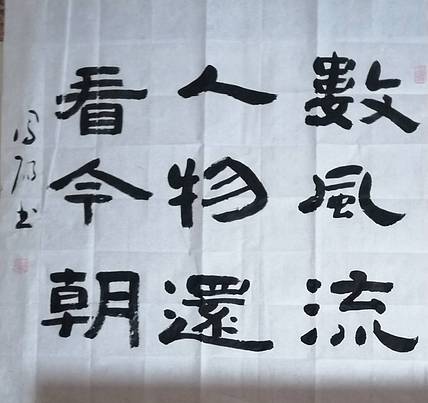 數風流
人物還
看今朝
书